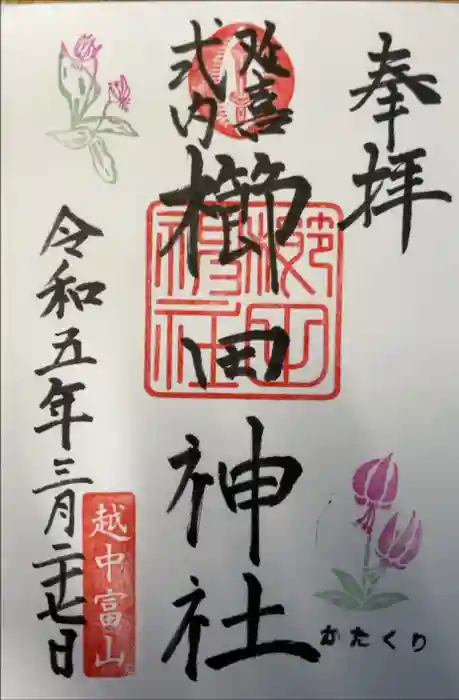 奉拝
歓喜
式内
櫛田神社
櫛田
神社
令和五年三月二十七日
越中富山
かたくり